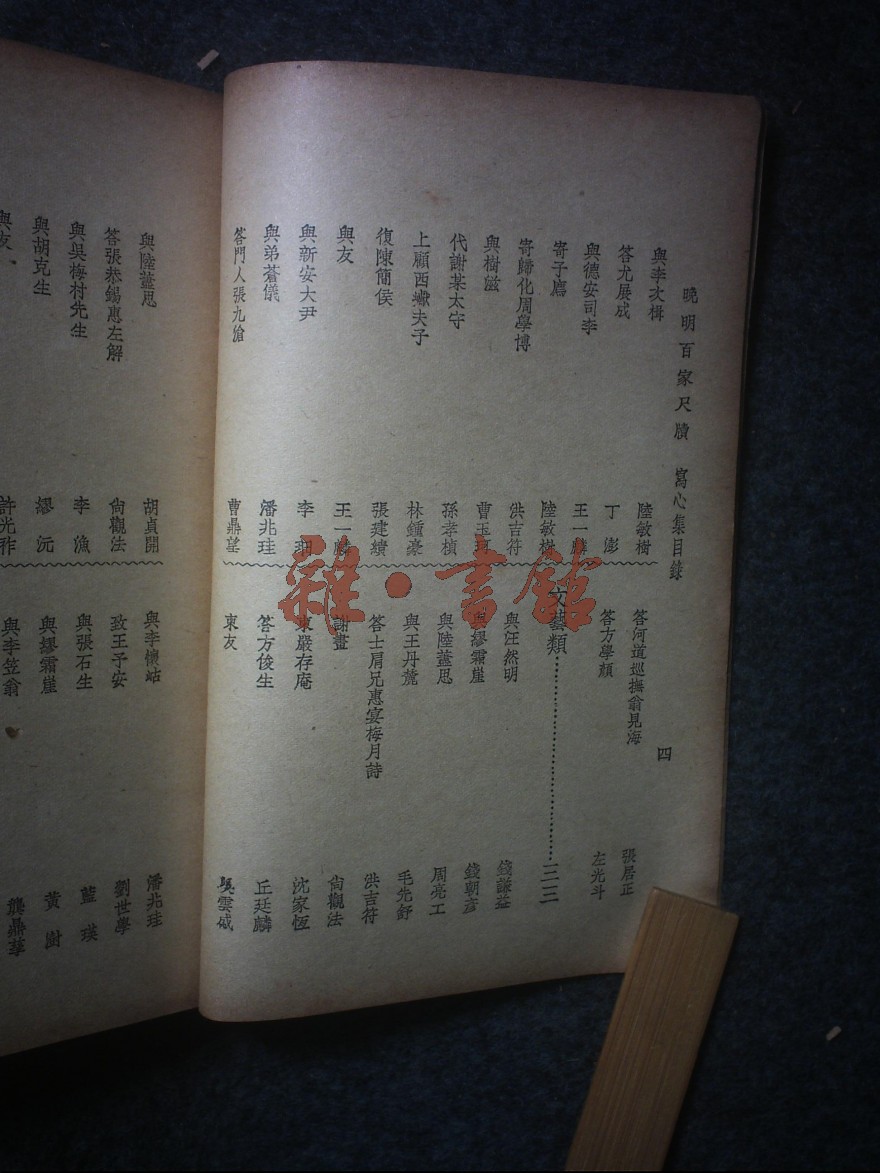 曉明百家尺牘　寫心集目錄
四
與李次楫　陸敏樹
答尤展成　丁　澎
與德安司李　王一麟
寄子鷹　陸敏樹
寄歸化周學博　洪吉符
與樹滋　曹玉珂
代謝某太守　孫孝楨
上顧西巘夫子　林鍾豪
復陳簡侯　張建績
與友　王一麟
與新安大尹　李
與弟蒼儀　潘兆珪
答門人張九滄　曹鼎望
答河道巡撫翁見海　張居正
答方學顏　左光斗
文藝類……一三三
與汪然明　錢謙益
與繆霜崖　錢朝彥
與陸藎思　周亮工
與王丹麓　毛先舒
答士肩兄惠宴梅月詩　洪吉符
謝畫　尙觀法
柬嚴存庵　沈家恆
答方俊生　丘廷麟
柬友　吳雲
與陸藎思　胡貞開
答張恭錫惠左解　尙觀法
與吳梅村先生　李　漁
與胡克生　繆　沅
與友　許光祚
與李懷岵　潘兆珪
致王予安　劉世學
與張石生　藍　瑛
與繆霜崖　黃　澍
與李笠翁　龔鼎孳
雜·書館